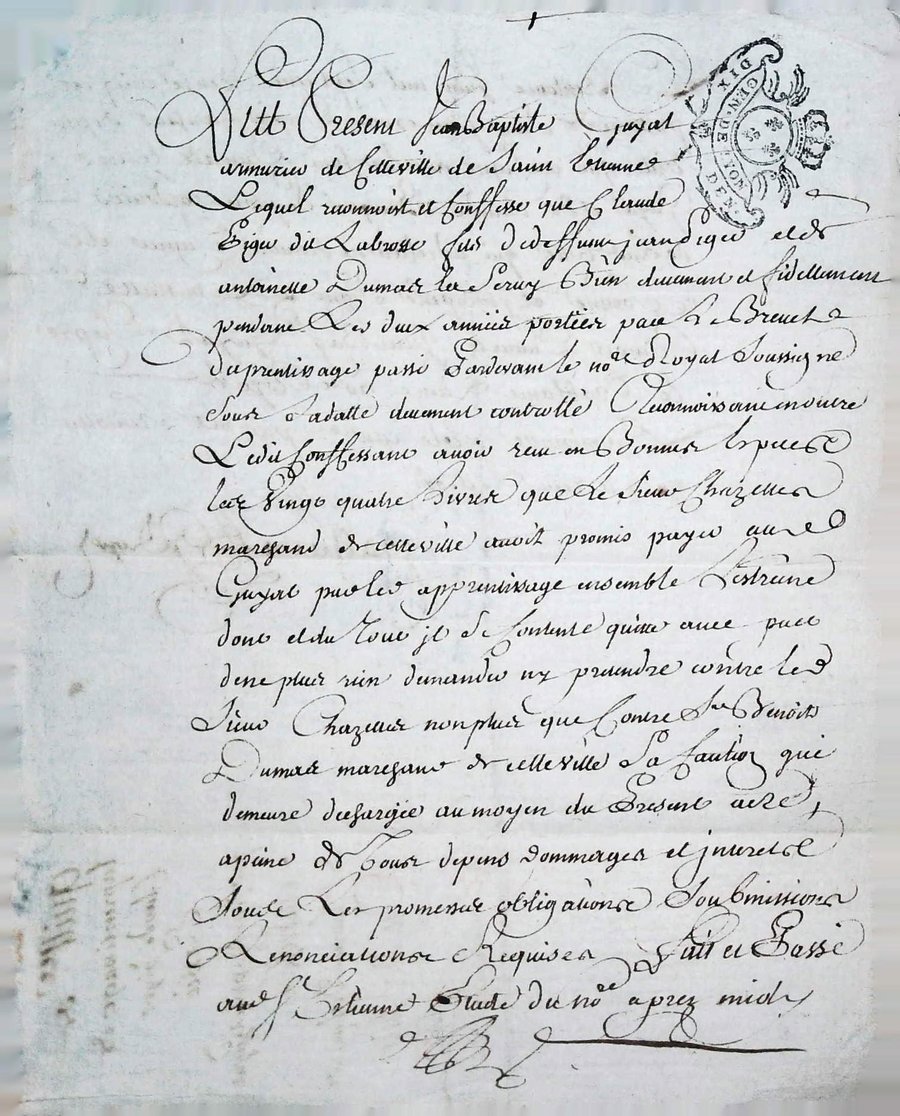 Fut Present Jean Baptiste Guyat
armurier de cette ville de Saint Etienne
Lequel reconnoist et Confesse que Claude
Piger dit Labrosse fils de deffunt jean Piger et de
antoinette Dumas la servy Bien deuement et fidellement
pendant Les deux années portées par Le Brevet
daprentissage passé Pardevant le no.re Royal soussigné
sous sa datte deuement controllé Reconnoissant en outre
Ledit Confessant avoir receu en Bonnes Especes
les Vingt quatre livres que Le sieur Chazelles
marchand de cette ville avoit promis payer aud
Guyat par led apprentissage ensemble Lestreine
dont et du tout jl se Contente quitte avec pact
de ne plus rien demander ny pretendre contre led
sieur Chazelles non plus que Contre Sr Benoit
Dumas marchand de cette ville sa Caution qui
demeure dechargée au moyen du Present acte,
a peine de tous depens dommages et jnterets
sous Les promesses obligations soubmissions
Renonciations Requises fait et Passé
aud St Estienne Etude du no.re apres midy
DIX
DEN.
GEN. DE